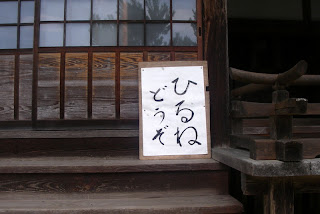 ひるね
どうぞ